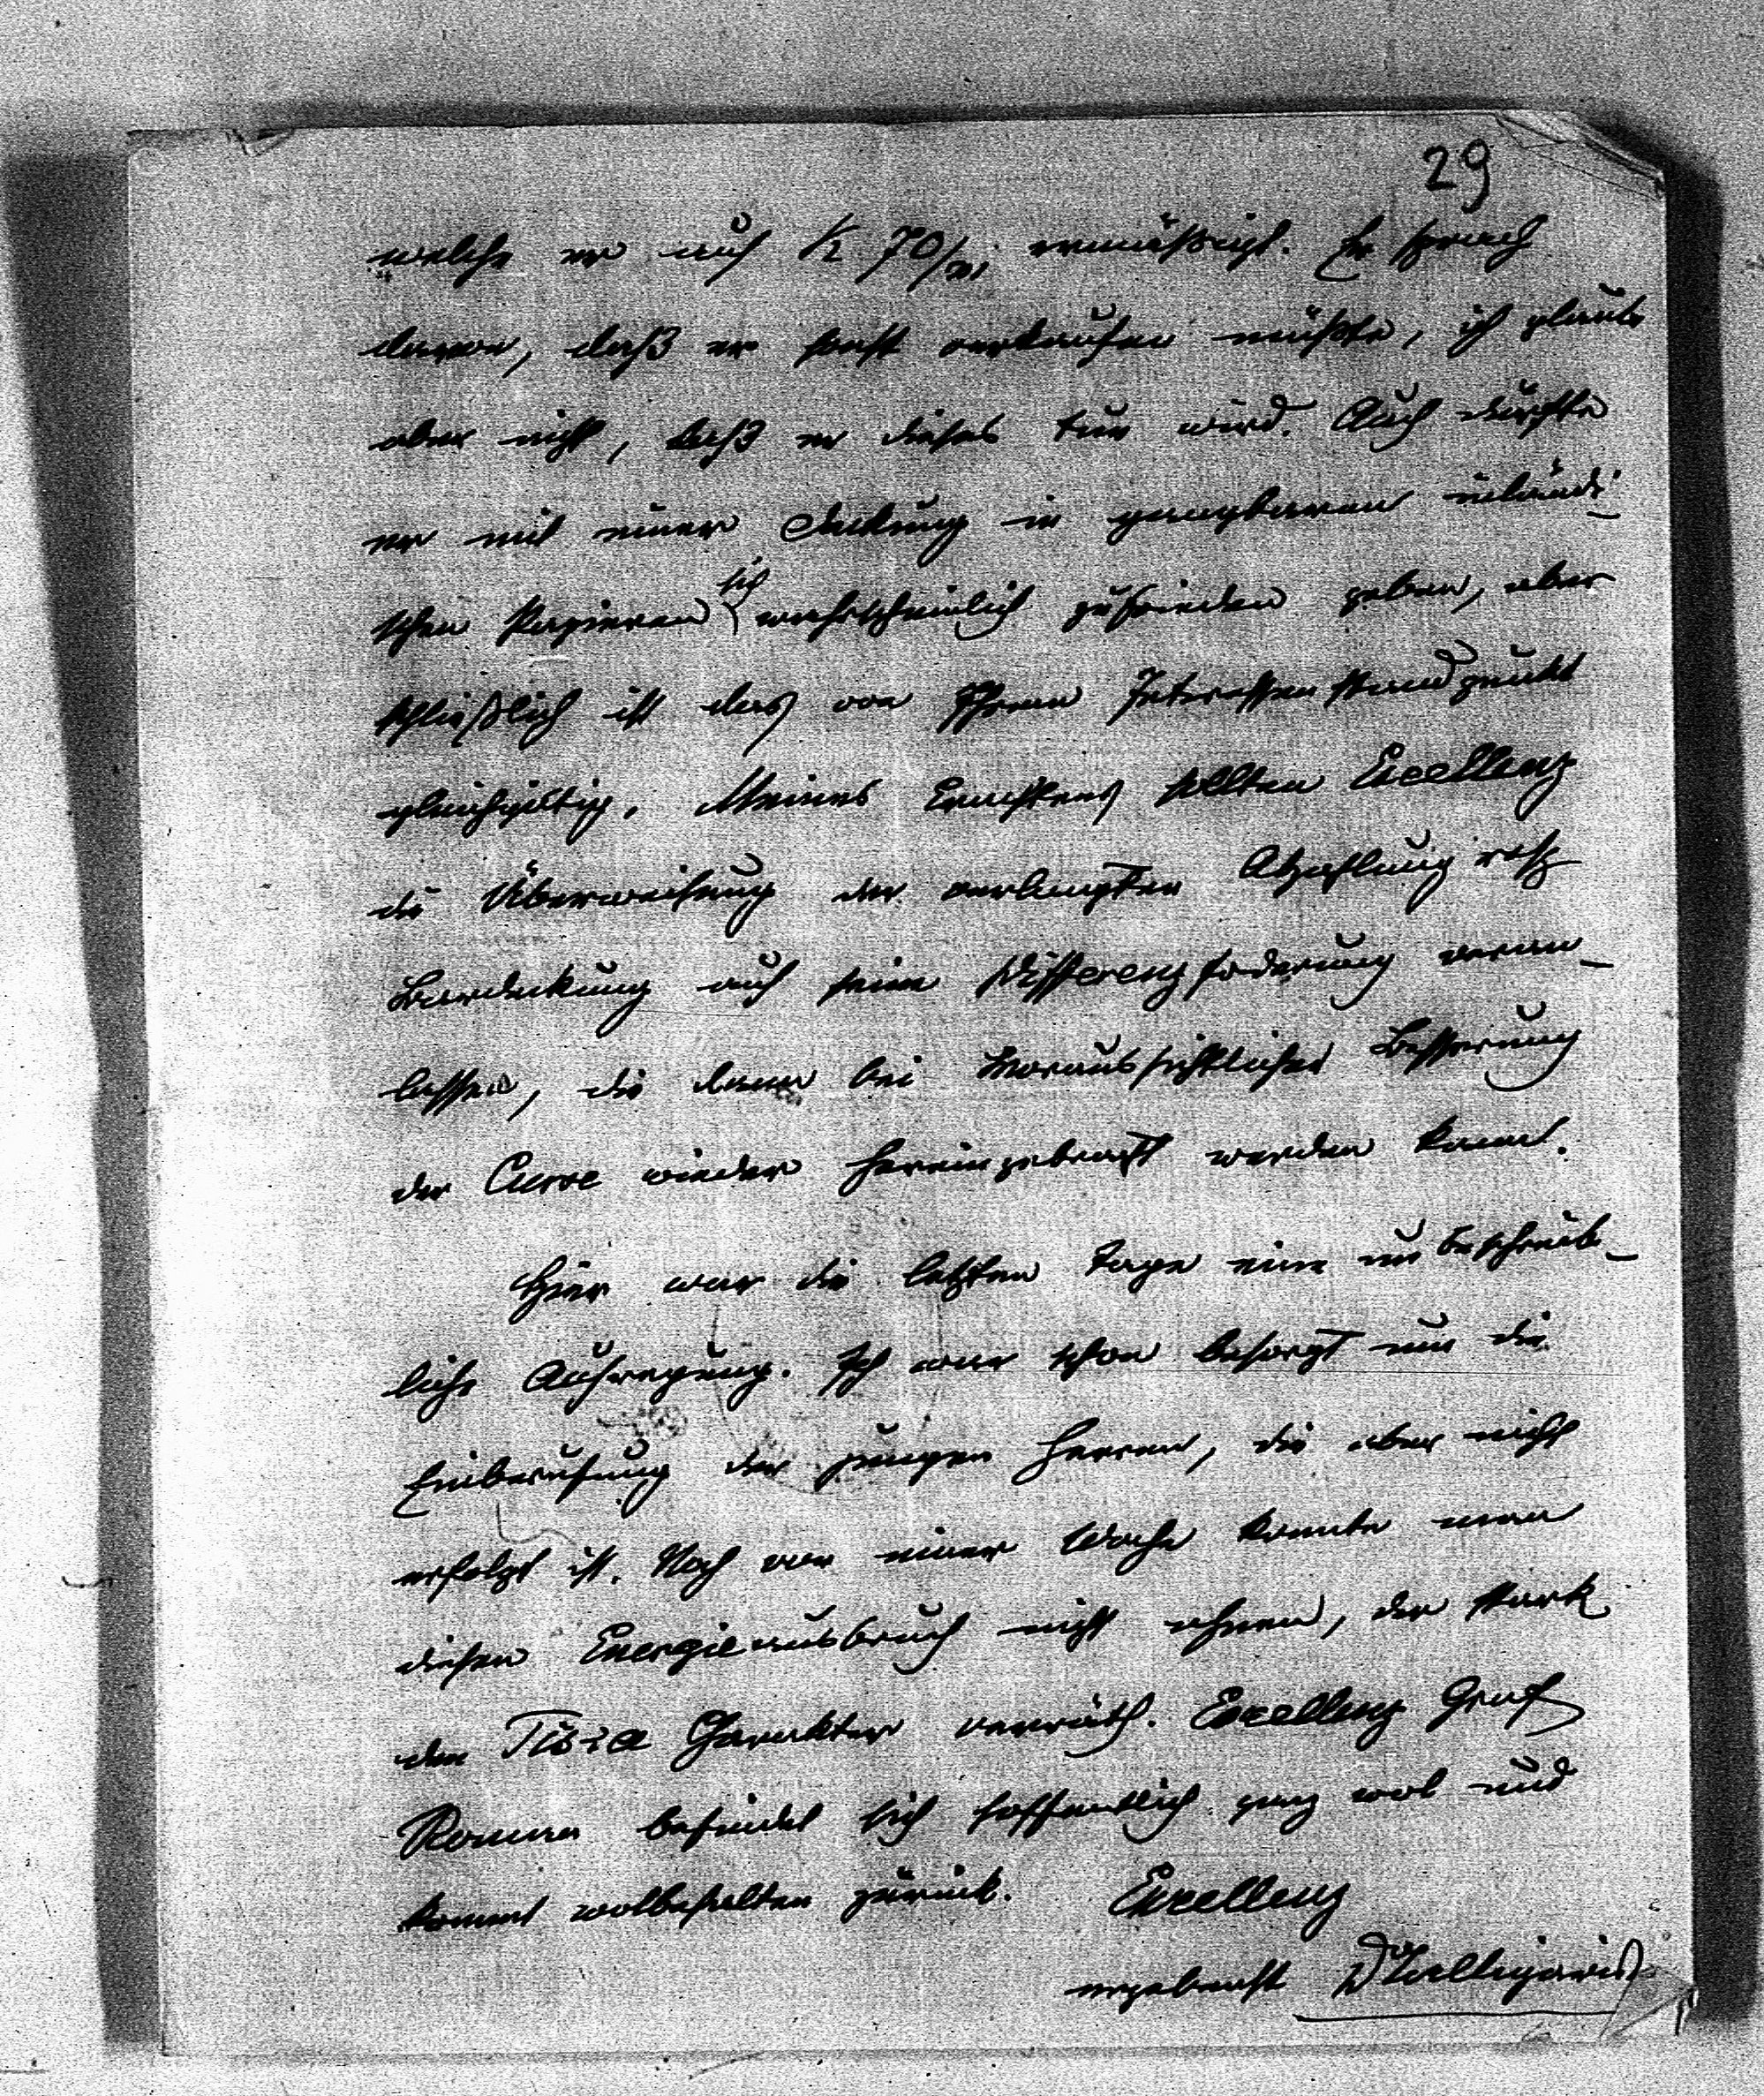 29
welche er auf K 70/m ermäßigt. Er sprach
davon, daß er sonst verkaufen müßte, ich glaube
aber nicht, daß er dieses tun wird. Auch dürfte
er mit einer Deckung in gangbaren inländi-
schen Papieren sich wahrscheinlich zufrieden geben, aber
schließlich ist das von Ihrem Interessenstandpunkt
gleichgültig. Meines Erachtens sollten Excellenz
die Überweisung der verlangten Abzahlung resp
Bardeckung auf seine Differenzforderung veran-
lassen, die dann bei voraussichtlicher Besserung
der Curse wieder hereingebracht werden kann.
Hier war die letzten Tage eine unbeschreib-
liche Aufregung. Ich war schon besorgt um die
Einberufung der jungen Herren, die aber nicht
erfolgt ist. Noch vor einer Woche konnte man
diesen Energieausbruch nicht ahnen, der stark
den Tisza Charakter verräth. Excellenz Graf
befindet sich hoffentlich ganz wol und
kommt wolbehalten zurück. Excellenz
ergebenst